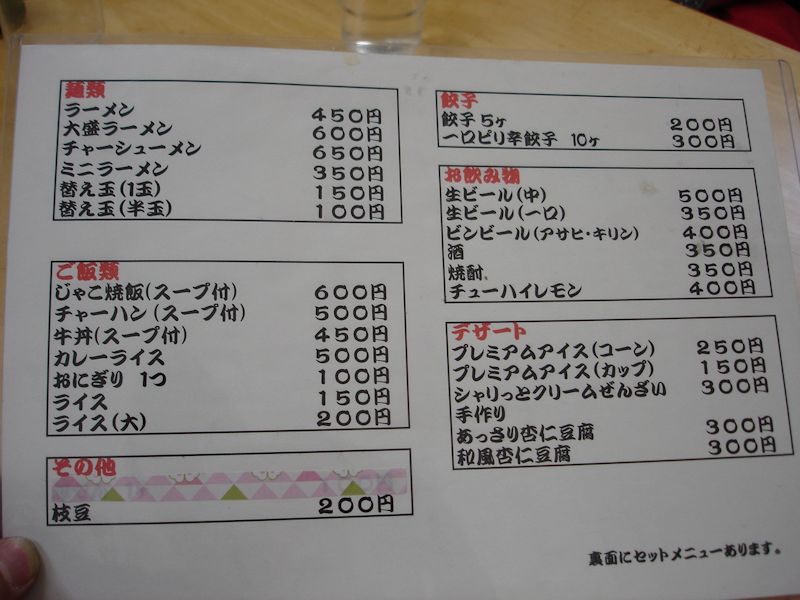 麺類
ラーメン 450円
大盛ラーメン 600円
チャーシューメン 650円
ミニラーメン 350円
替え玉(1玉) 150円
替え玉(半玉) 100円
ご飯類
じゃこ焼飯(スープ付) 600円
チャーハン(スープ付) 500円
牛丼(スープ付) 450円
カレーライス 500円
おにぎり 1つ 100円
ライス 150円
ライス(大) 200円
その他
枝豆 200円
餃子
餃子5ヶ 200円
一口ピリ辛餃子 10ヶ 300円
お飲み物
生ビール(中) 500円
生ビール(一口) 350円
ビンビール(アサヒ・キリン) 400円
酒 350円
焼酎 350円
チューハイレモン 400円
デザート
プレミアムアイス(コーン) 250円
プレミアムアイス(カップ) 150円
シャリっとクリームぜんざい 300円
手作り
あっさり杏仁豆腐 300円
和風杏仁豆腐 300円
裏面にセットメニューあります。